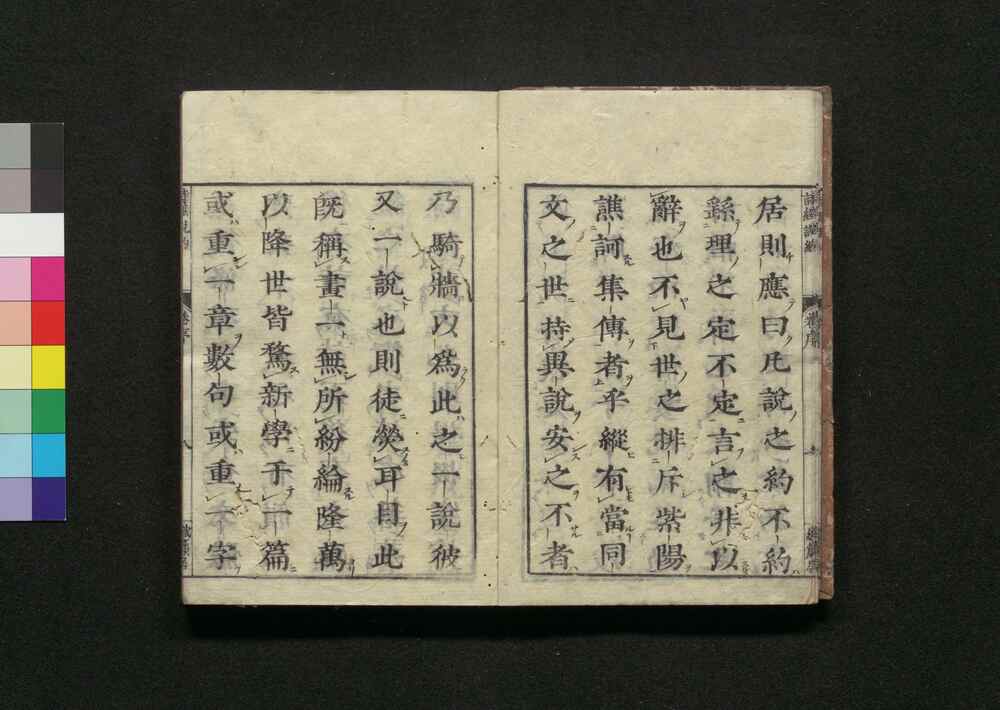 居則應曰凡說之約不約
繇理之定不定言之非以
辭也不見世之排斥紫陽
譙訶集傳者乎縱有當同
文之世持異說安之不者
乃騎牆以爲此之一說彼
又一說也則徒熒耳目此
旣稱畫一無所紛綸隆萬
以降世皆騖新學于一篇
或重一章數句或重一字